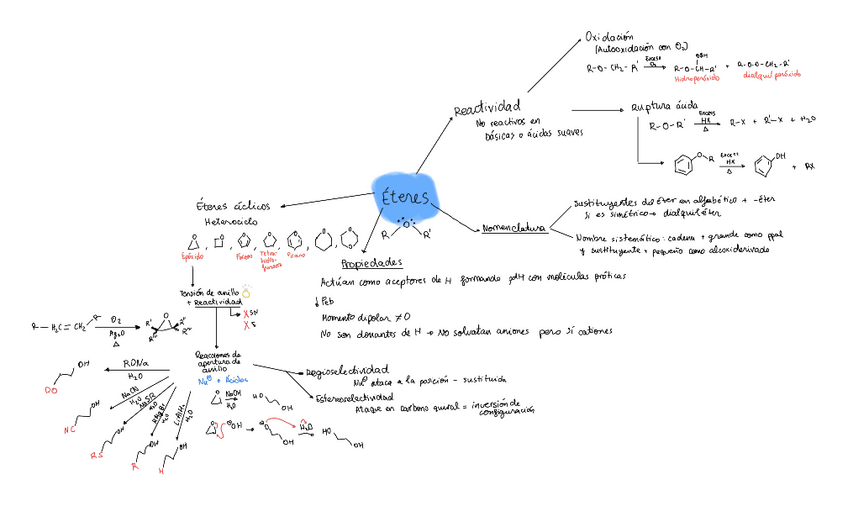 Éteres
R O R'
Reactividad
No reactivos en
básicas o ácidas suaves
Oxidación
(Autooxidación con O₂)
R-O-CH₂-R' Exceso O₂ R-O-CH-R' + R-O-O-CH₂-R'
OOH
Hidroperóxido dialquil peróxido
Ruptura ácida
R-O-R' Exceso HX Δ R-X + R'-X + H₂O
O R Exceso HX Δ OH + RX
Nomenclatura
Sustituyentes del éter en alfabético + -éter
si es simétrico → dialquiléter
Nombre sistemático: cadena + grande como ppal
y sustituyente + pequeño como alcoxiderivado
Propiedades
Actúan como aceptores de H formando pdH con moléculas próticas
↓ Peb
Momento dipolar ≠ 0
No son donantes de H → No solvatan aniones pero sí cationes
Éteres cíclicos
Heterociclo
Epóxido Furano Tetrahidrofurano Pirano
Tensión de anillo
+ Reactividad
X SN
X E
R-HC=CH₂-R O₂ Ag₂O Δ
Reacciones de
apertura de
anillo
Nu⊖ + Ácidos
NaOH
H₂O
HO OH
⊖OH H₂O HO OH
Regioselectividad
Nu⊖ ataca a la posición - sustituida
Estereoselectividad
Ataque en carbono quiral = inversión de
configuración
RONa
H₂O
OH
NaCN
H₂O
NC OH
NaSR
H₂O
RS OH
RMgBr
H₂O
R OH
LiAlH₄
H₂O
H OH